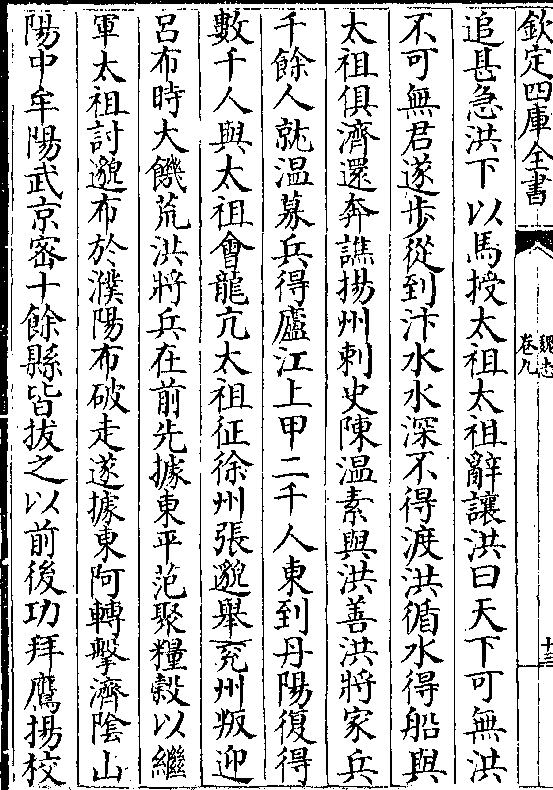 欽定四庫全書
魏志
卷九
十三
追甚急洪下以馬授太祖太祖辭讓洪曰天下可無洪
不可無君遂歩從到汴水水深不得渡洪循水得船與
太祖俱濟還奔譙揚州刺史陳温素與洪善洪將家兵
千餘人就温募兵得廬江上甲二千人東到丹陽復得
數千人與太祖會龍亢太祖征徐州張邈舉兖州叛迎
呂布時大饑荒洪將兵在前先據東平范聚糧穀以繼
軍太祖討邈布於濮陽布破走遂據東阿轉擊濟隂山
陽中牟陽武京密十餘縣皆拔之以前後功拜鷹揚校